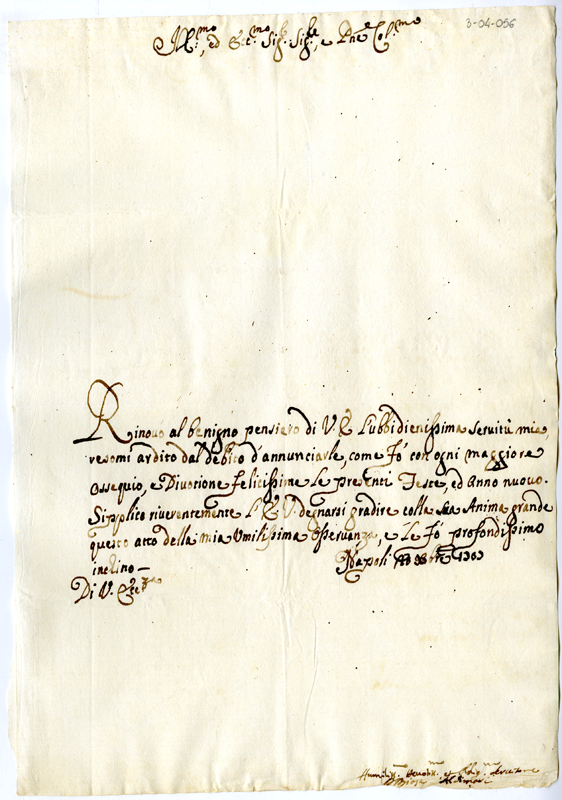 3-04-056
Ill.mo, ed Ecc.mo Sig.r Sig.re, e Pne Col.mo
Rinovo al benigno pensiero di V. E. l'ubbidienissima servitù mia,
resomi ardito dal debito d'annunciarle, come fò con ogni maggiore
ossequio, e Divotione felicissime le presenti feste, ed Anno nuovo.
Sipplico riverentemente l'E. V. degnarsi gradire colla sua Anima grande
questo atto della mia Umilissima Osservanza, e le fò profondissimo
inchino—
Napoli
Di V. Ecc.za
Humiliss.mo